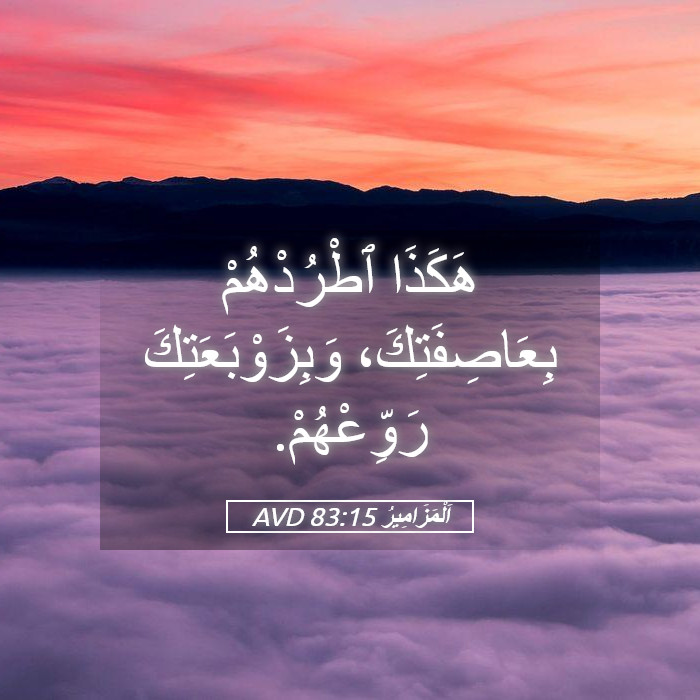 هَكَذَا ٱطْرُدْهُمْ
بِعَاصِفَتِكَ، وَبِزَوْبَعَتِكَ
رَوِّعْهُمْ.
اَلْمَزَامِيرُ 83:15 AVD